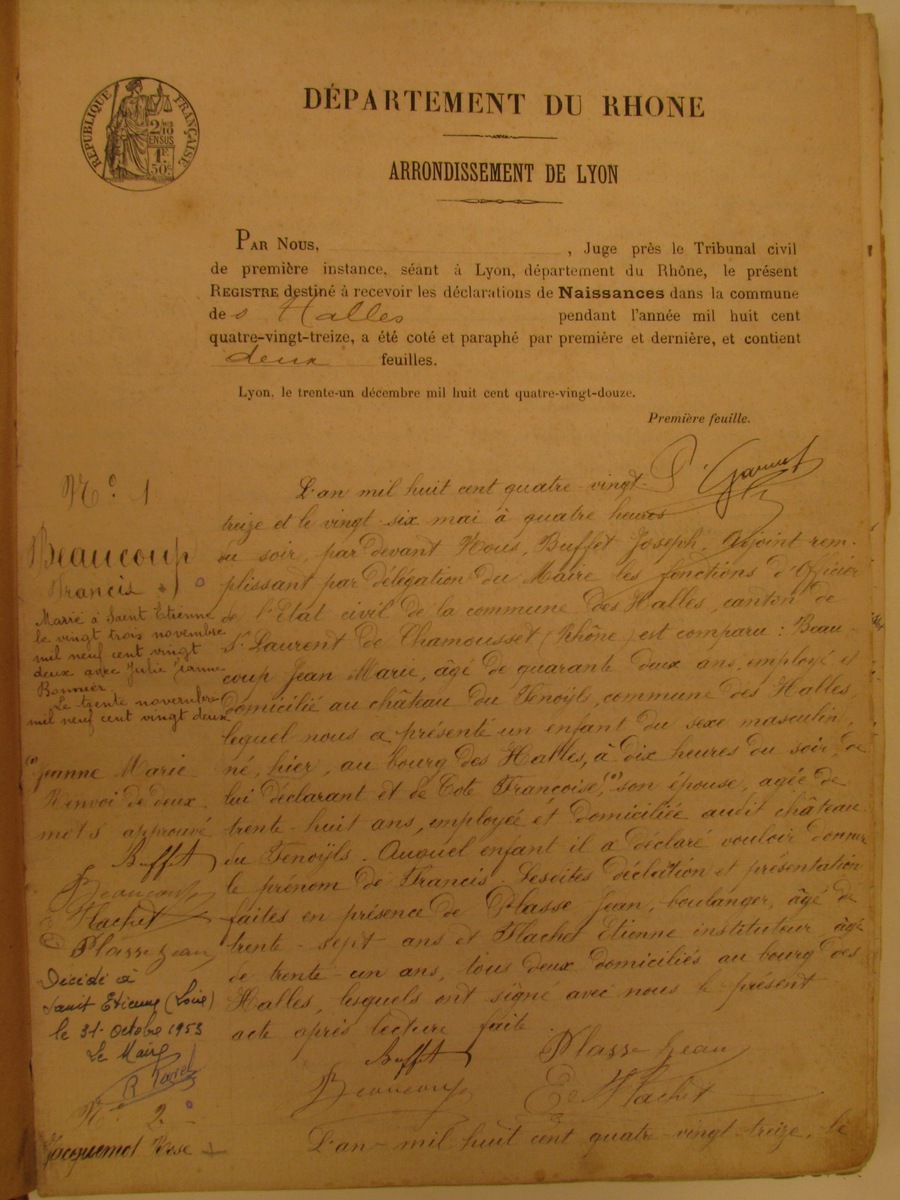 RÉPUBLIQUE FRANÇAISE
2/10
EN SUS
1F
50c
DÉPARTEMENT DU RHONE
ARRONDISSEMENT DE LYON
PAR NOUS, , Juge près le Tribunal civil
de première instance, séant à Lyon, département du Rhône, le présent
REGISTRE destiné à recevoir les déclarations de Naissances dans la commune
des Halles pendant l'année mil huit cent
quatre-vingt-treize, a été coté et paraphé par première et dernière, et contient
deux feuilles.
Lyon, le trente-un décembre mil huit cent quatre-vingt-douze.
Première feuille.
N° 1
Beaucoup
Francis
Marié à Saint Etienne
le vingt trois novembre
mil neuf cent vingt
deux avec Julie Jeanne
Bonnier.
Le trente novembre
mil neuf cent vingt deux
(1) Jeanne Marie
Renvoi de deux
mots approuvé
Buffet
Beaucoup
E Flachet
Plasse Jean
Décédé à
Saint Etienne (Loire)
le 31 Octobre 1953
Le Maire
N° 2
Jacquemot Rose
L'an mil huit cent quatre-vingt-
treize et le vingt-six mai à quatre heures
du soir, par devant Nous, Buffet Joseph, Adjoint rem-
plissant par délégation du Maire les fonctions d'Officier
de l'Etat civil de la commune des Halles, canton de
St Laurent de Chamousset (Rhône) est comparu : Beau-
coup Jean Marie, âgé de quarante deux ans, employé et
domicilié au château du Fenoÿls, commune des Halles,
lequel nous a présenté un enfant du sexe masculin,
né, hier, au bourg des Halles, à dix heures du soir, de
lui déclarant et de Cote Françoise, (1) son épouse, agée de
trente-huit ans, employée et domiciliée audit château
du Fenoÿls. Auquel enfant il a déclaré vouloir donner
le prénom de Francis. Lesdites déclation et présentation
faites en présence de Plasse Jean, boulanger, âgé de
trente-sept ans et Flachet Etienne instituteur, âgé
de trente-un ans, tous deux domiciliés au bourg des
Halles, lesquels ont signé avec nous le présent
acte après lecture faite.
Buffet Plasse Jean
Beaucoup E Flachet
L'an mil huit cent quatre-vingt-treize, le